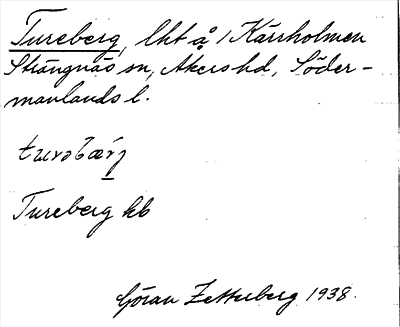 Tureberg, lht å 1 Kärrholmen
Strängnäs sn, Åkers hd, Söder-
manlands l.
Tureberg hb
Göran Zetterberg 1938.